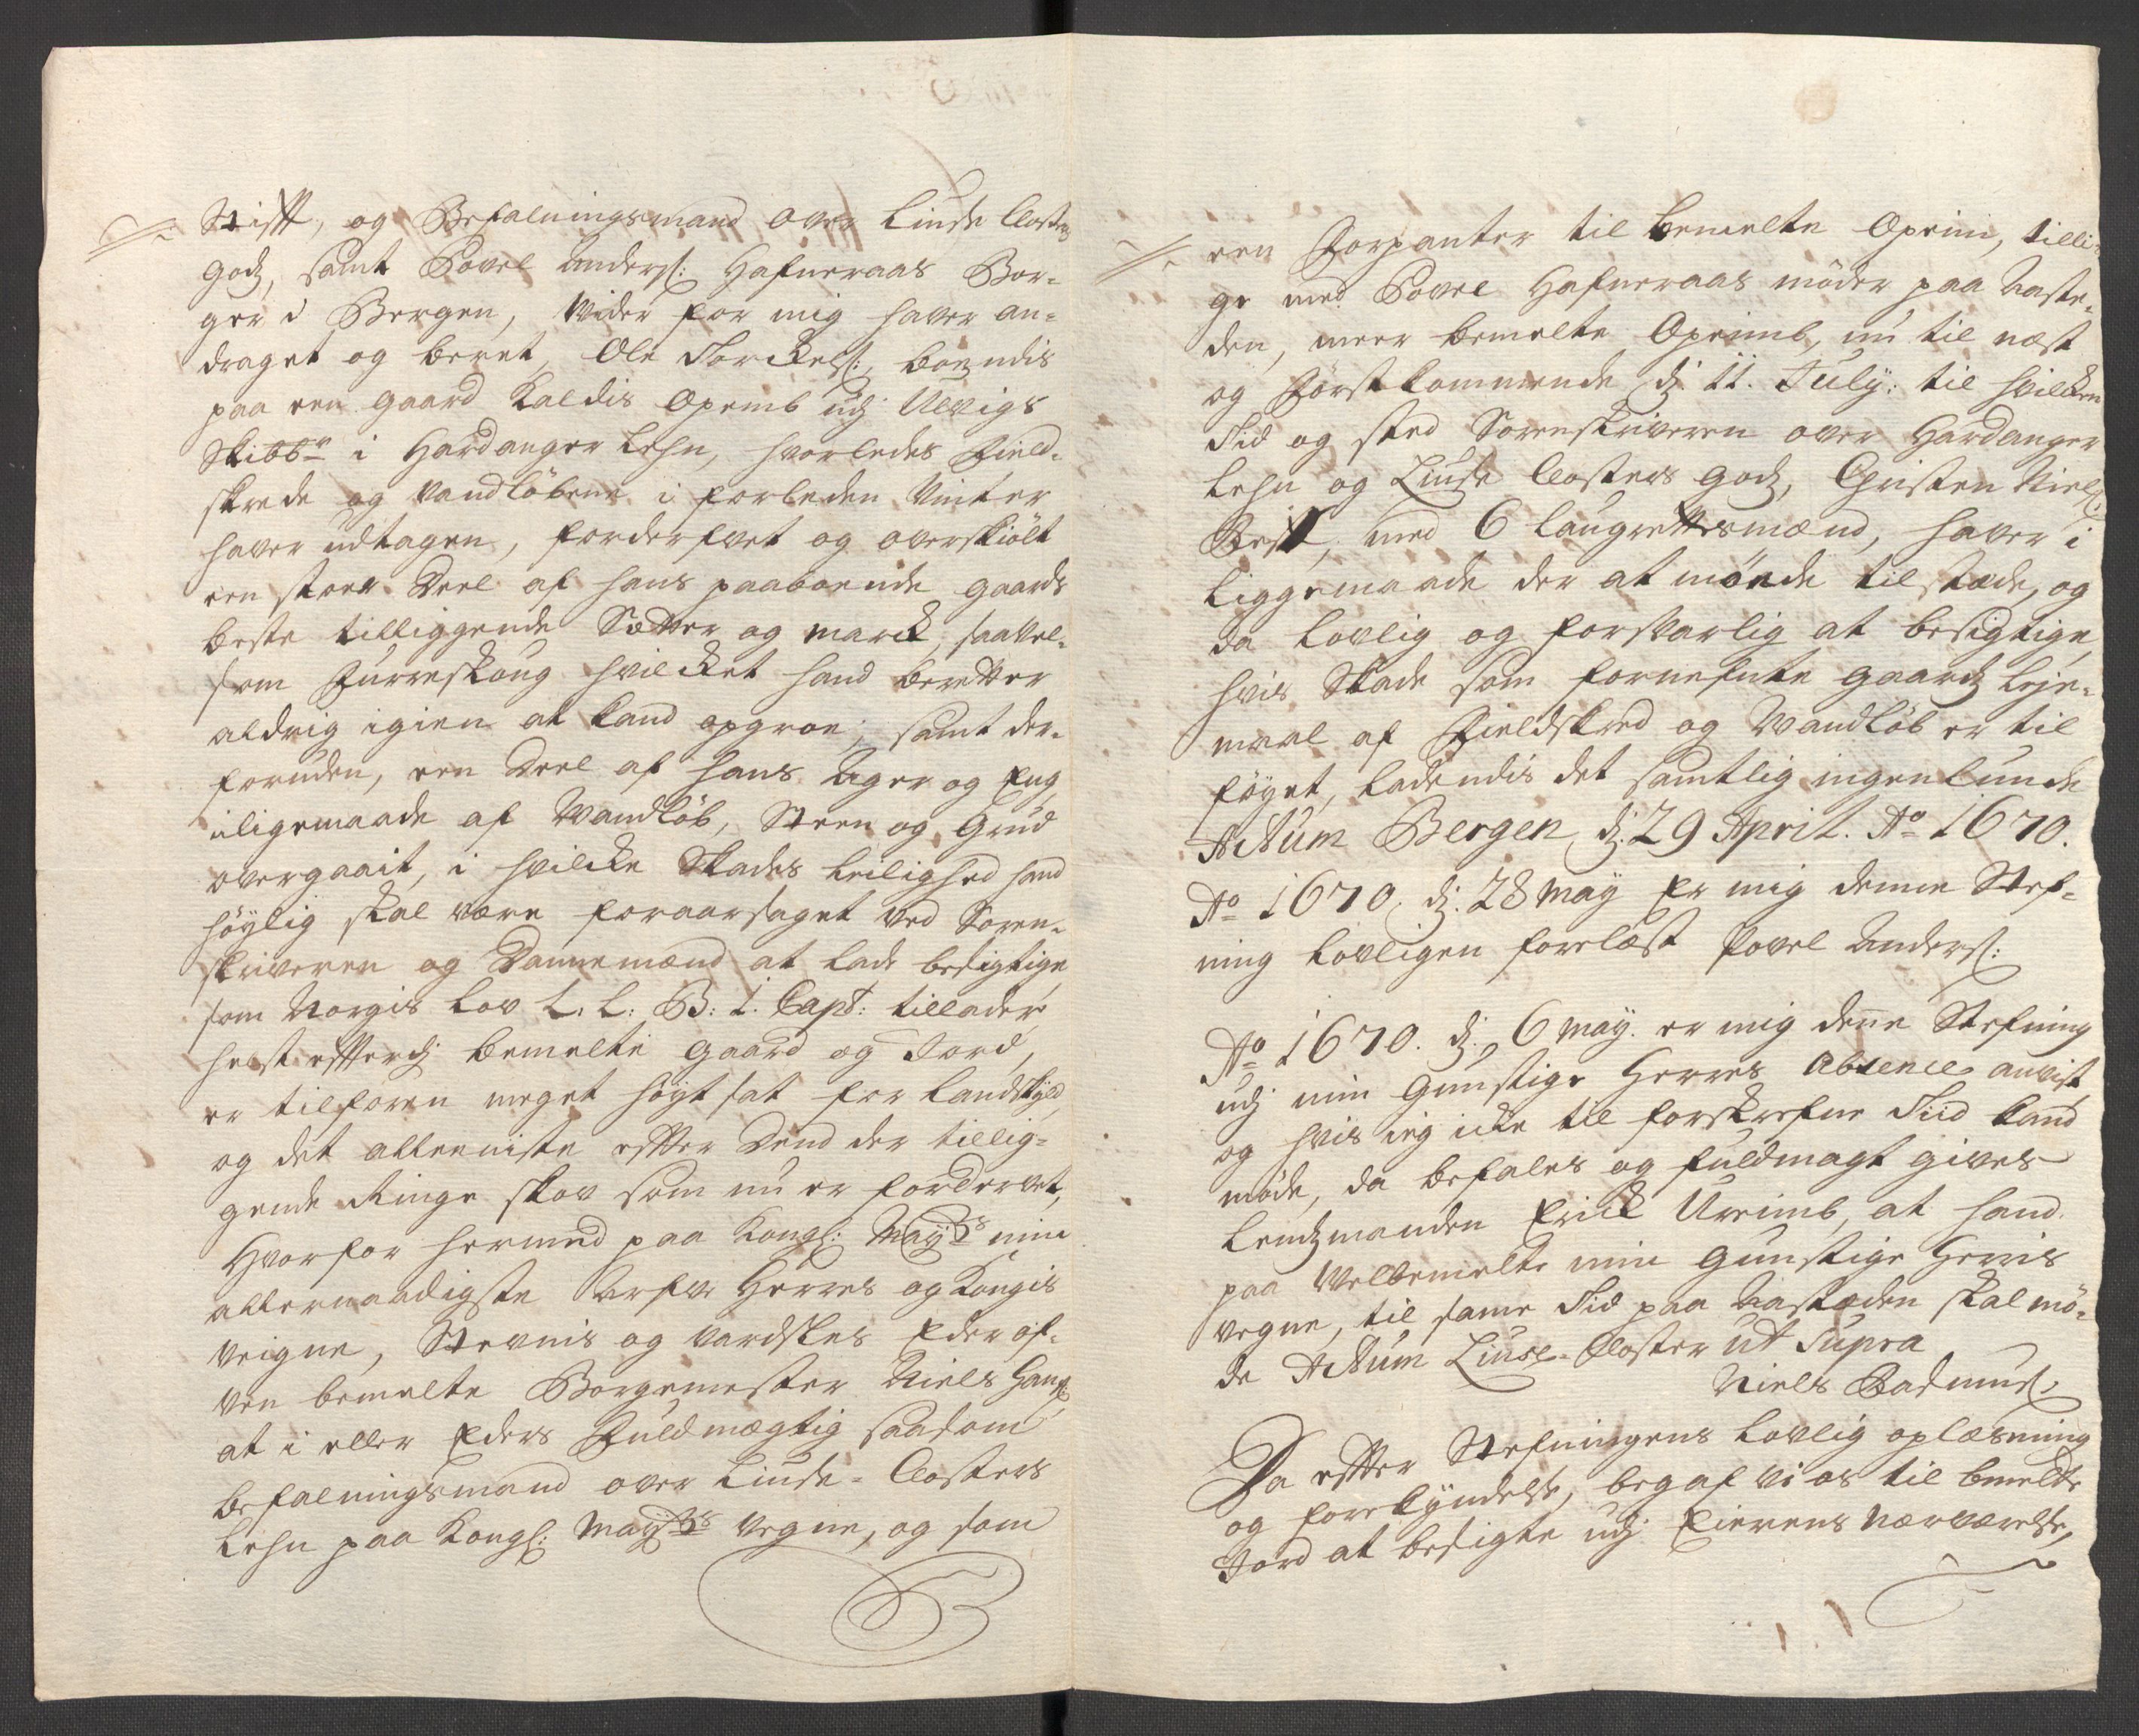 Stifft, og Befalningsmand over Liuse Closters
godz, samt Povel Anders: Hafneraas Bor-
ger i Bergen, Wider for mig haver an-
draget og beret, Ole Torckels: boendis
paa een gaard kaldis Opemb udj Ulvigs
Skibbr i Hardanger Lehn, hvorledes Field-
skrede og vandløbene i forleden Vinter
haver udtagen, forderfvet og overskiølt
een stoer Deel af hans paaboende gaards
beste tilliggende Sætter og marck, saavel-
som Furreskoug hvilcket hand beretter
aldrig igien at kand opgroe, samt der-
foruden, een Deel af hans Ager og Eng
iligemaade af Wandløb, Steen og Grud
overgaait, i hvilcke Skades leilighed hand
høylig skal være foraarsaget ved Soren-
skriveren og Dannemænd at lade besigtige
som Norgis Lov L. L. B: 1. Capt: tillader
helst effterdj bemelte gaard og Jord,
er tilforen meget høyt sat for Landskyld
og det alleeniste effter Dend der tillig-
gende Ringe skov som nu er fordervet,
Hvorfor hermed paa Kongl: Mayts min
allernaadigste Arfve Herres og Kongis
veigne, Stevnis og vardskes Eder of-
ven bemelte Borgemester Niels Hans:
at i eller Eders Fuldmægtig saasom
befalningsmand over Liuse-Closters
Lehn paa Kongl: Mayts Vegne, og som
een Forpanter til bemelte Opeim, tilli-
ge med Povel Hafneraas møder paa Aaste-
den, meer bemelte Opeimb, nu til næst
og førstkommende dj 11. July: til hvilcken
Tid og sted Sorenskriveren over Hardanger
Lehn og Liuse Closters godz, Christen Niels:
Best, med 6 laugrettesmænd, haver i
liggemaade der at møede tilstæde, og
da lovlig og forsvarlig at besigtige,
hvis Skade som fornefnte gaardz leje-
maal af Fieldskred og Wandløb er til
føyet, ladendis det samtlig ingenlunde
Actum Bergen dj. 29 April. Ao 1670.
Ao 1670. dj. 28 May Er mig denne Stef-
ning lovligen forelæst Povel Anders:
Ao 1670. dj. 6 May. er mig denne Stefning
udj min Gunstige Herres Absence anvist
og hvis ieg icke til forskrefne Tiid kand
møde, da befales og fuldmagt gives
Lendzmanden Erick Ureimb, at hand
paa Welbemelte min Gunstige Herris
vegne, til samme Tid paa Aastæden skal mø-
de Actum Liuse-Closter ut Supra
Niels Rasmus:
Da effter Stefningens lovlig oplæsning
og forekyndelse, begaf vi os til bemelte
Jord at besigte udj Eierens nærværelse,